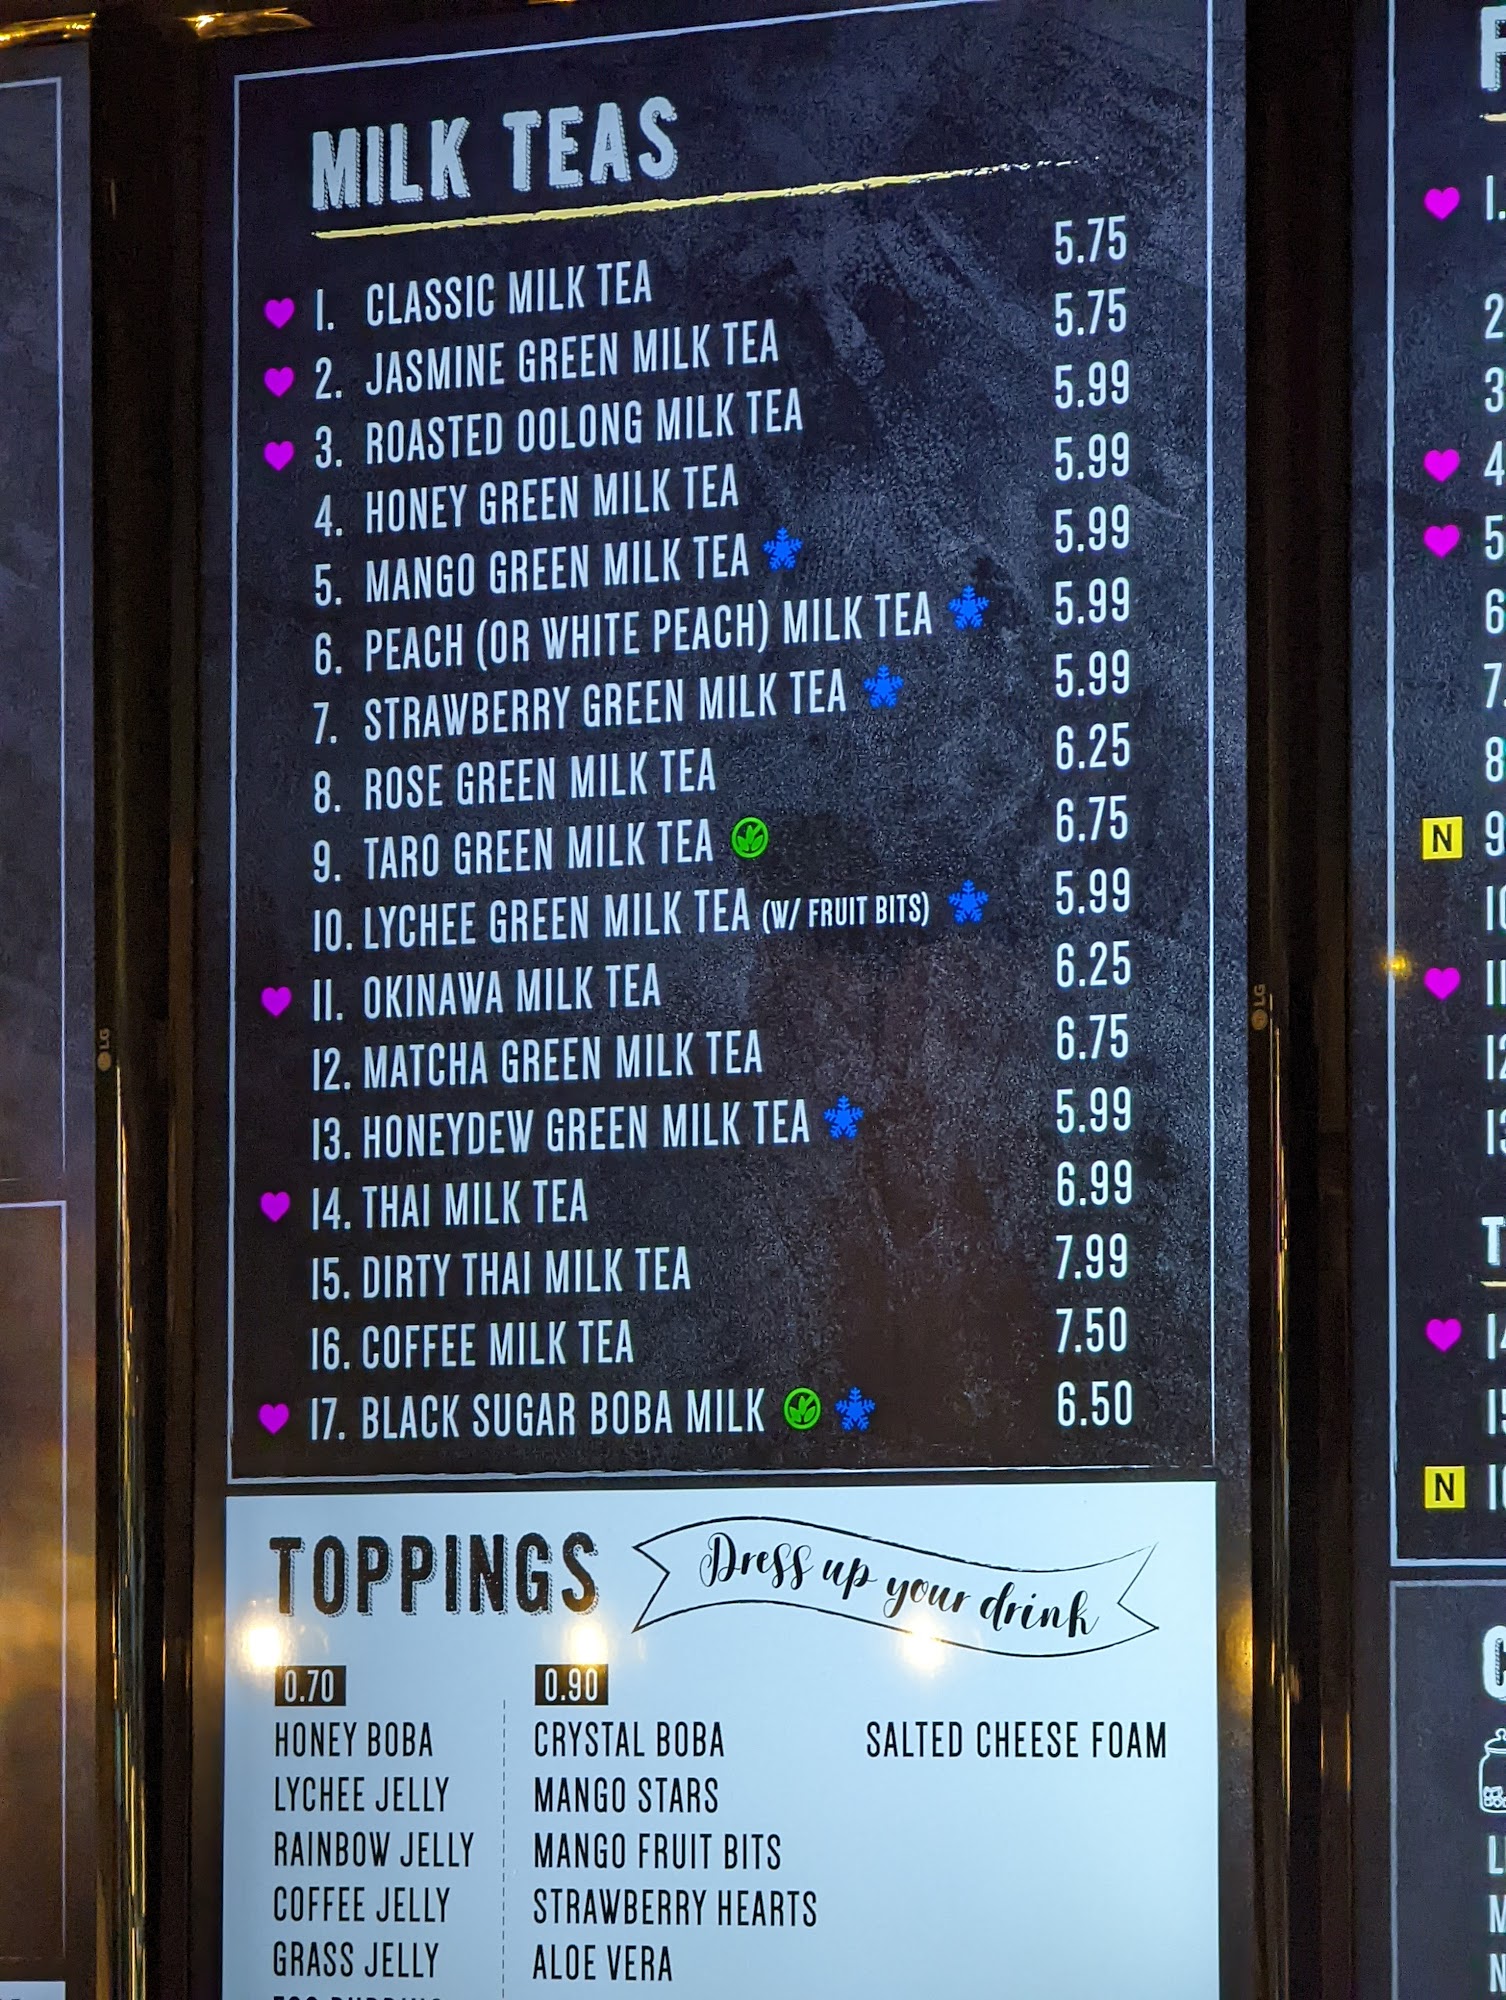 MILK TEAS
1. CLASSIC MILK TEA 5.75
2. JASMINE GREEN MILK TEA 5.75
3. ROASTED OOLONG MILK TEA 5.99
4. HONEY GREEN MILK TEA 5.99
5. MANGO GREEN MILK TEA 5.99
6. PEACH (OR WHITE PEACH) MILK TEA 5.99
7. STRAWBERRY GREEN MILK TEA 5.99
8. ROSE GREEN MILK TEA 6.25
9. TARO GREEN MILK TEA 6.75
10. LYCHEE GREEN MILK TEA (W/ FRUIT BITS) 5.99
11. OKINAWA MILK TEA 6.25
12. MATCHA GREEN MILK TEA 6.75
13. HONEYDEW GREEN MILK TEA 5.99
14. THAI MILK TEA 6.99
15. DIRTY THAI MILK TEA 7.99
16. COFFEE MILK TEA 7.50
17. BLACK SUGAR BOBA MILK 6.50
TOPPINGS
Dress up your drink
0.70
HONEY BOBA
LYCHEE JELLY
RAINBOW JELLY
COFFEE JELLY
GRASS JELLY
0.90
CRYSTAL BOBA
MANGO STARS
MANGO FRUIT BITS
STRAWBERRY HEARTS
ALOE VERA
SALTED CHEESE FOAM
LG
LG
1.
2
3
4
5
6
7
8
N 9
N